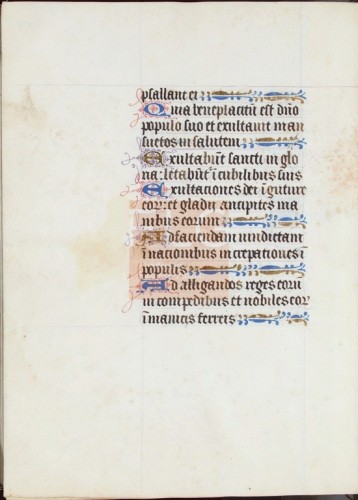 psallant ei
Quia beneplacitū est dn̄o
populo suo et exultauit man
suetos in salutem
Exultabūt sancti in glo
ria: letabūt ī cubilibus suis
Exultaciones dei ī guture
eor: et gladii ancipites ma
nibus eorum
Ad faciendam uindictam
ī nacionibus increpationes ī
populis
Ad alligandos reges eorū
in compedibus et nobiles eor
ī manicis ferreis